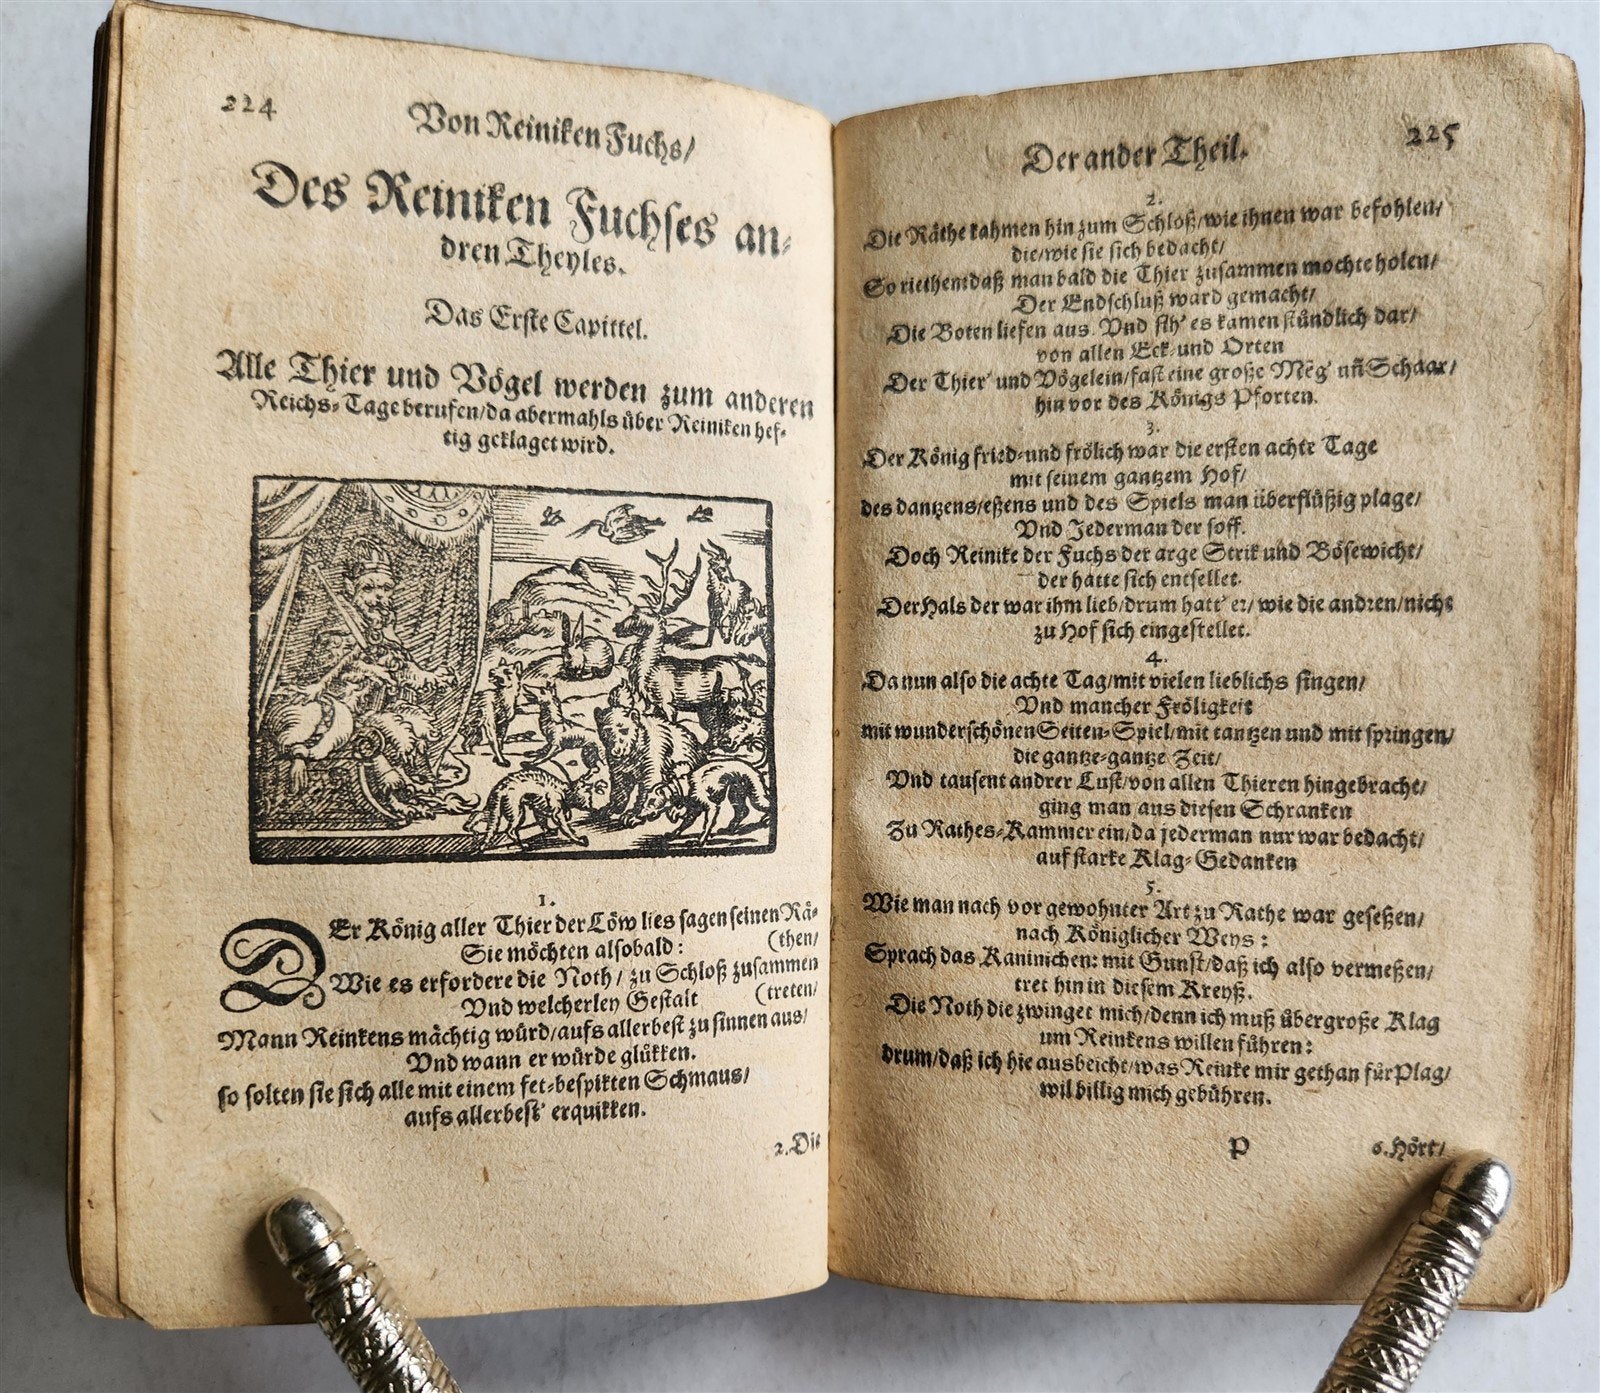 224
Von Reiniken Fuchs/
Des Reiniken Fuchses an-
dren Theyles.
Das Erste Capittel.
Alle Thier und Vögel werden zum anderen
Reichs-Tage berufen/da abermahls über Reiniken hef-
tig geklaget wird.
1.
DEr König aller Thier der Löw lies sagen seinen Rä-
Sie möchten alsobald: (then/
Wie es erfordere die Noth/ zu Schloß zusammen
Vnd welcherley Gestalt (treten/
Mann Reinkens mächtig würd/aufs allerbest zu sinnen aus/
Vnd wann er würde glükken.
so solten sie sich alle mit einem fet-bespikten Schmaus/
aufs allerbest' erquikken.
2. Die
Der ander Theil.
225
2.
Die Räthe kahmen hin zum Schloß/wie ihnen war befohlen/
die/wie sie sich bedacht/
So riethen daß man bald die Thier zusammen mochte holen/
Der Endschluß ward gemacht/
Die Boten liefen aus. Vnd sih' es kamen stündlich dar/
von allen Eck-und Orten
Der Thier' und Vögelein/fast eine große Mẽg' uñ Schaar/
hin vor des Königs Pforten.
3.
Der König fried-und frölich war die ersten achte Tage
mit seinem gantzem Hof/
des dantzens/eßens und des Spiels man überflüßig plage/
Vnd Jederman der soff.
Doch Reinike der Fuchs der arge Strik und Bösewicht/
der hatte sich entsellet.
Der Hals der war ihm lieb/drum hatt' er/ wie die andren/nicht
zu Hof sich eingestellet.
4.
Da nun also die achte Tag/mit vielen lieblichs singen/
Vnd mancher Fröligkeit
mit wunderschönen Seiten-Spiel/mit tantzen und mit springen/
die gantze-gantze Zeit/
Vnd tausent andrer Lust/von allen Thieren hingebracht/
ging man aus diesen Schranken
Zu Rathes-Kammer ein/da jederman nur war bedacht/
auf starke Klag-Gedanken
5.
Wie man nach vor gewohnter Art zu Rathe war geseßen/
nach Königlicher Weys:
Sprach das Kaninichen: mit Gunst/daß ich also vermeßen/
tret hin in diesem Kreyß.
Die Noth die zwinget mich/denn ich muß übergroße Klag
um Reinkens willen führen:
drum/daß ich hie ausbeicht/was Reinke mir gethan für Plag/
wil billig mich gebühren.
P
6. Hört/